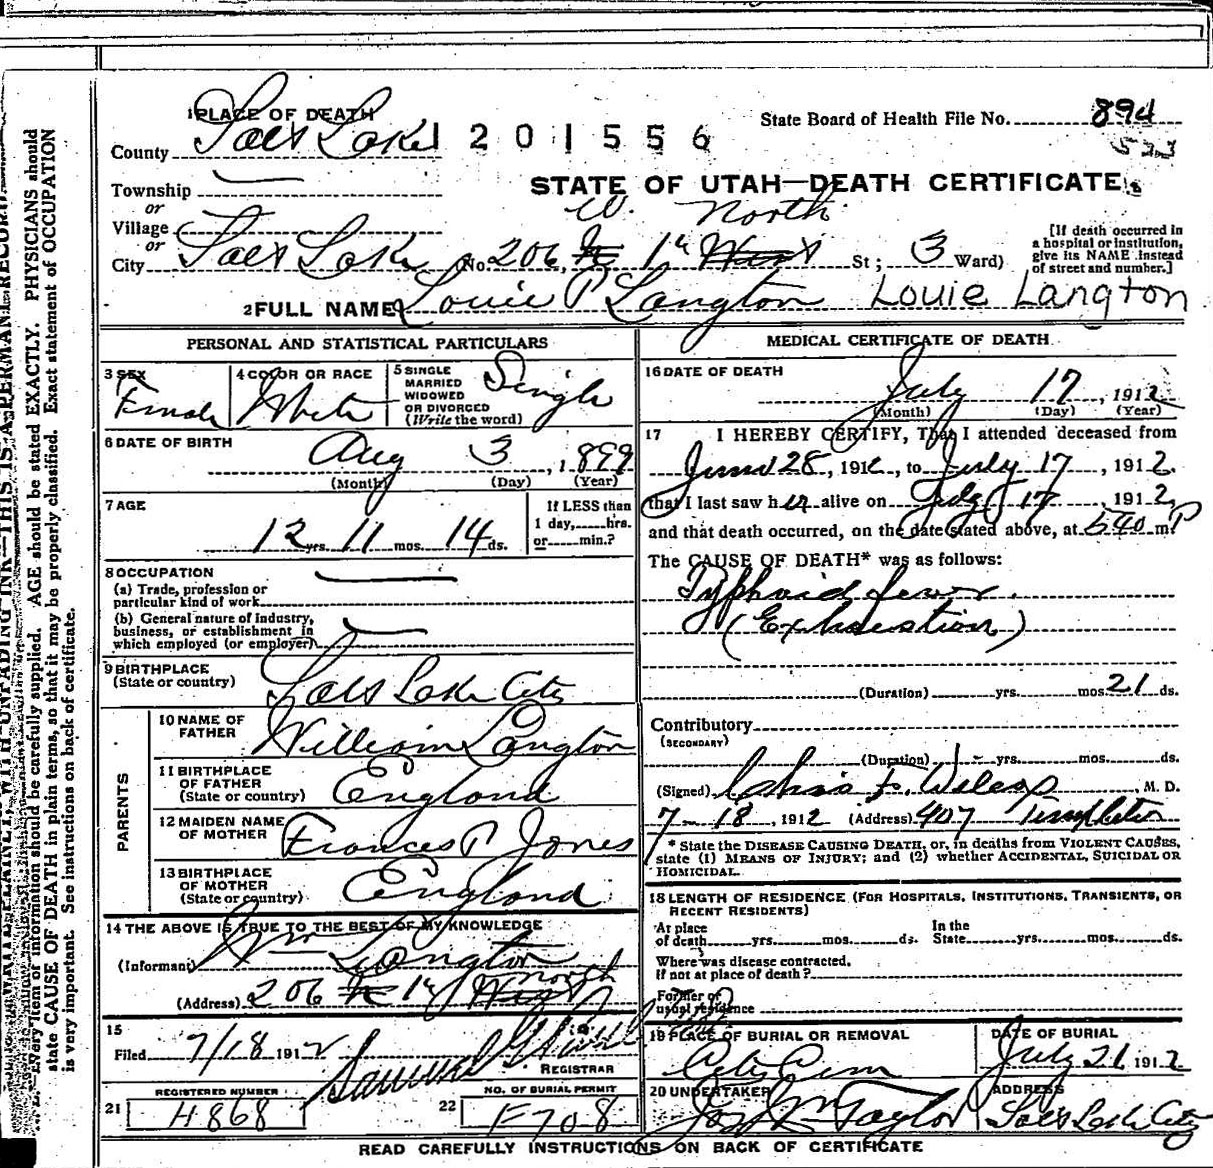 1 PLACE OF DEATH
County Salt Lake 1201556
State Board of Health File No. 894
533
Township
or
Village
or
City Salt Lake
STATE OF UTAH—DEATH CERTIFICATE
W. North
No. 206, 1st West St; 3 Ward)
[If death occurred in
a hospital or institution,
give its NAME instead
of street and number.]
2 FULL NAME Louie P Langton Louie Langton
PERSONAL AND STATISTICAL PARTICULARS
3 SEX
Female
4 COLOR OR RACE
White
5 SINGLE
MARRIED
WIDOWED
OR DIVORCED
(Write the word)
Single
6 DATE OF BIRTH
Aug 3, 1899
(Month) (Day) (Year)
7 AGE
12 yrs. 11 mos. 14 ds.
If LESS than
1 day, hrs.
or min.?
8 OCCUPATION
(a) Trade, profession or
particular kind of work
(b) General nature of Industry,
business, or establishment in
which employed (or employer)
9 BIRTHPLACE
(State or country)
Salt Lake City
PARENTS
10 NAME OF
FATHER
William Langton
11 BIRTHPLACE
OF FATHER
(State or country)
England
12 MAIDEN NAME
OF MOTHER
Frances P Jones
13 BIRTHPLACE
OF MOTHER
(State or country)
England
14 THE ABOVE IS TRUE TO THE BEST OF MY KNOWLEDGE
(Informant) Wm Langton
north
(Address) 206 W 1st West
15
Filed 7/18 1912 Samuel G
REGISTRAR
REGISTERED NUMBER
21 4868
NO. OF BURIAL PERMIT
22 F708
MEDICAL CERTIFICATE OF DEATH
16 DATE OF DEATH
July 17, 1912
(Month) (Day) (Year)
17 I HEREBY CERTIFY, That I attended deceased from
June 28, 1912, to July 17, 1912.
that I last saw her alive on July 17, 1912,
and that death occurred, on the date stated above, at 540 m. P
The CAUSE OF DEATH* was as follows:
Typhoid fever.
(Exhaustion)
(Duration) yrs. mos. 21 ds.
Contributory
(SECONDARY)
(Duration) yrs. mos. ds.
(Signed) F. , M. D.
7-18, 1912 (Address) 407 Templeton
* State the DISEASE CAUSING DEATH, or, in deaths from VIOLENT CAUSES,
state (1) MEANS OF INJURY; and (2) whether ACCIDENTAL, SUICIDAL OR
HOMICIDAL.
18 LENGTH OF RESIDENCE (FOR HOSPITALS, INSTITUTIONS, TRANSIENTS, OR
RECENT RESIDENTS)
At place
of death yrs. mos. ds.
In the
State yrs. mos. ds.
Where was disease contracted,
If not at place of death?
Former or
usual residence
19 PLACE OF BURIAL OR REMOVAL
City Cem
DATE OF BURIAL
July 21 1912
20 UNDERTAKER
Jos Wm Taylor
ADDRESS
Salt Lake City
READ CAREFULLY INSTRUCTIONS ON BACK OF CERTIFICATE
WRITE PLAINLY, WITH UNFADING INK—THIS IS A PERMANENT RECORD.
Every item of information should be carefully supplied. AGE should be stated EXACTLY. PHYSICIANS should
state CAUSE OF DEATH in plain terms, so that it may be properly classified. Exact statement of OCCUPATION
is very important. See instructions on back of certificate.